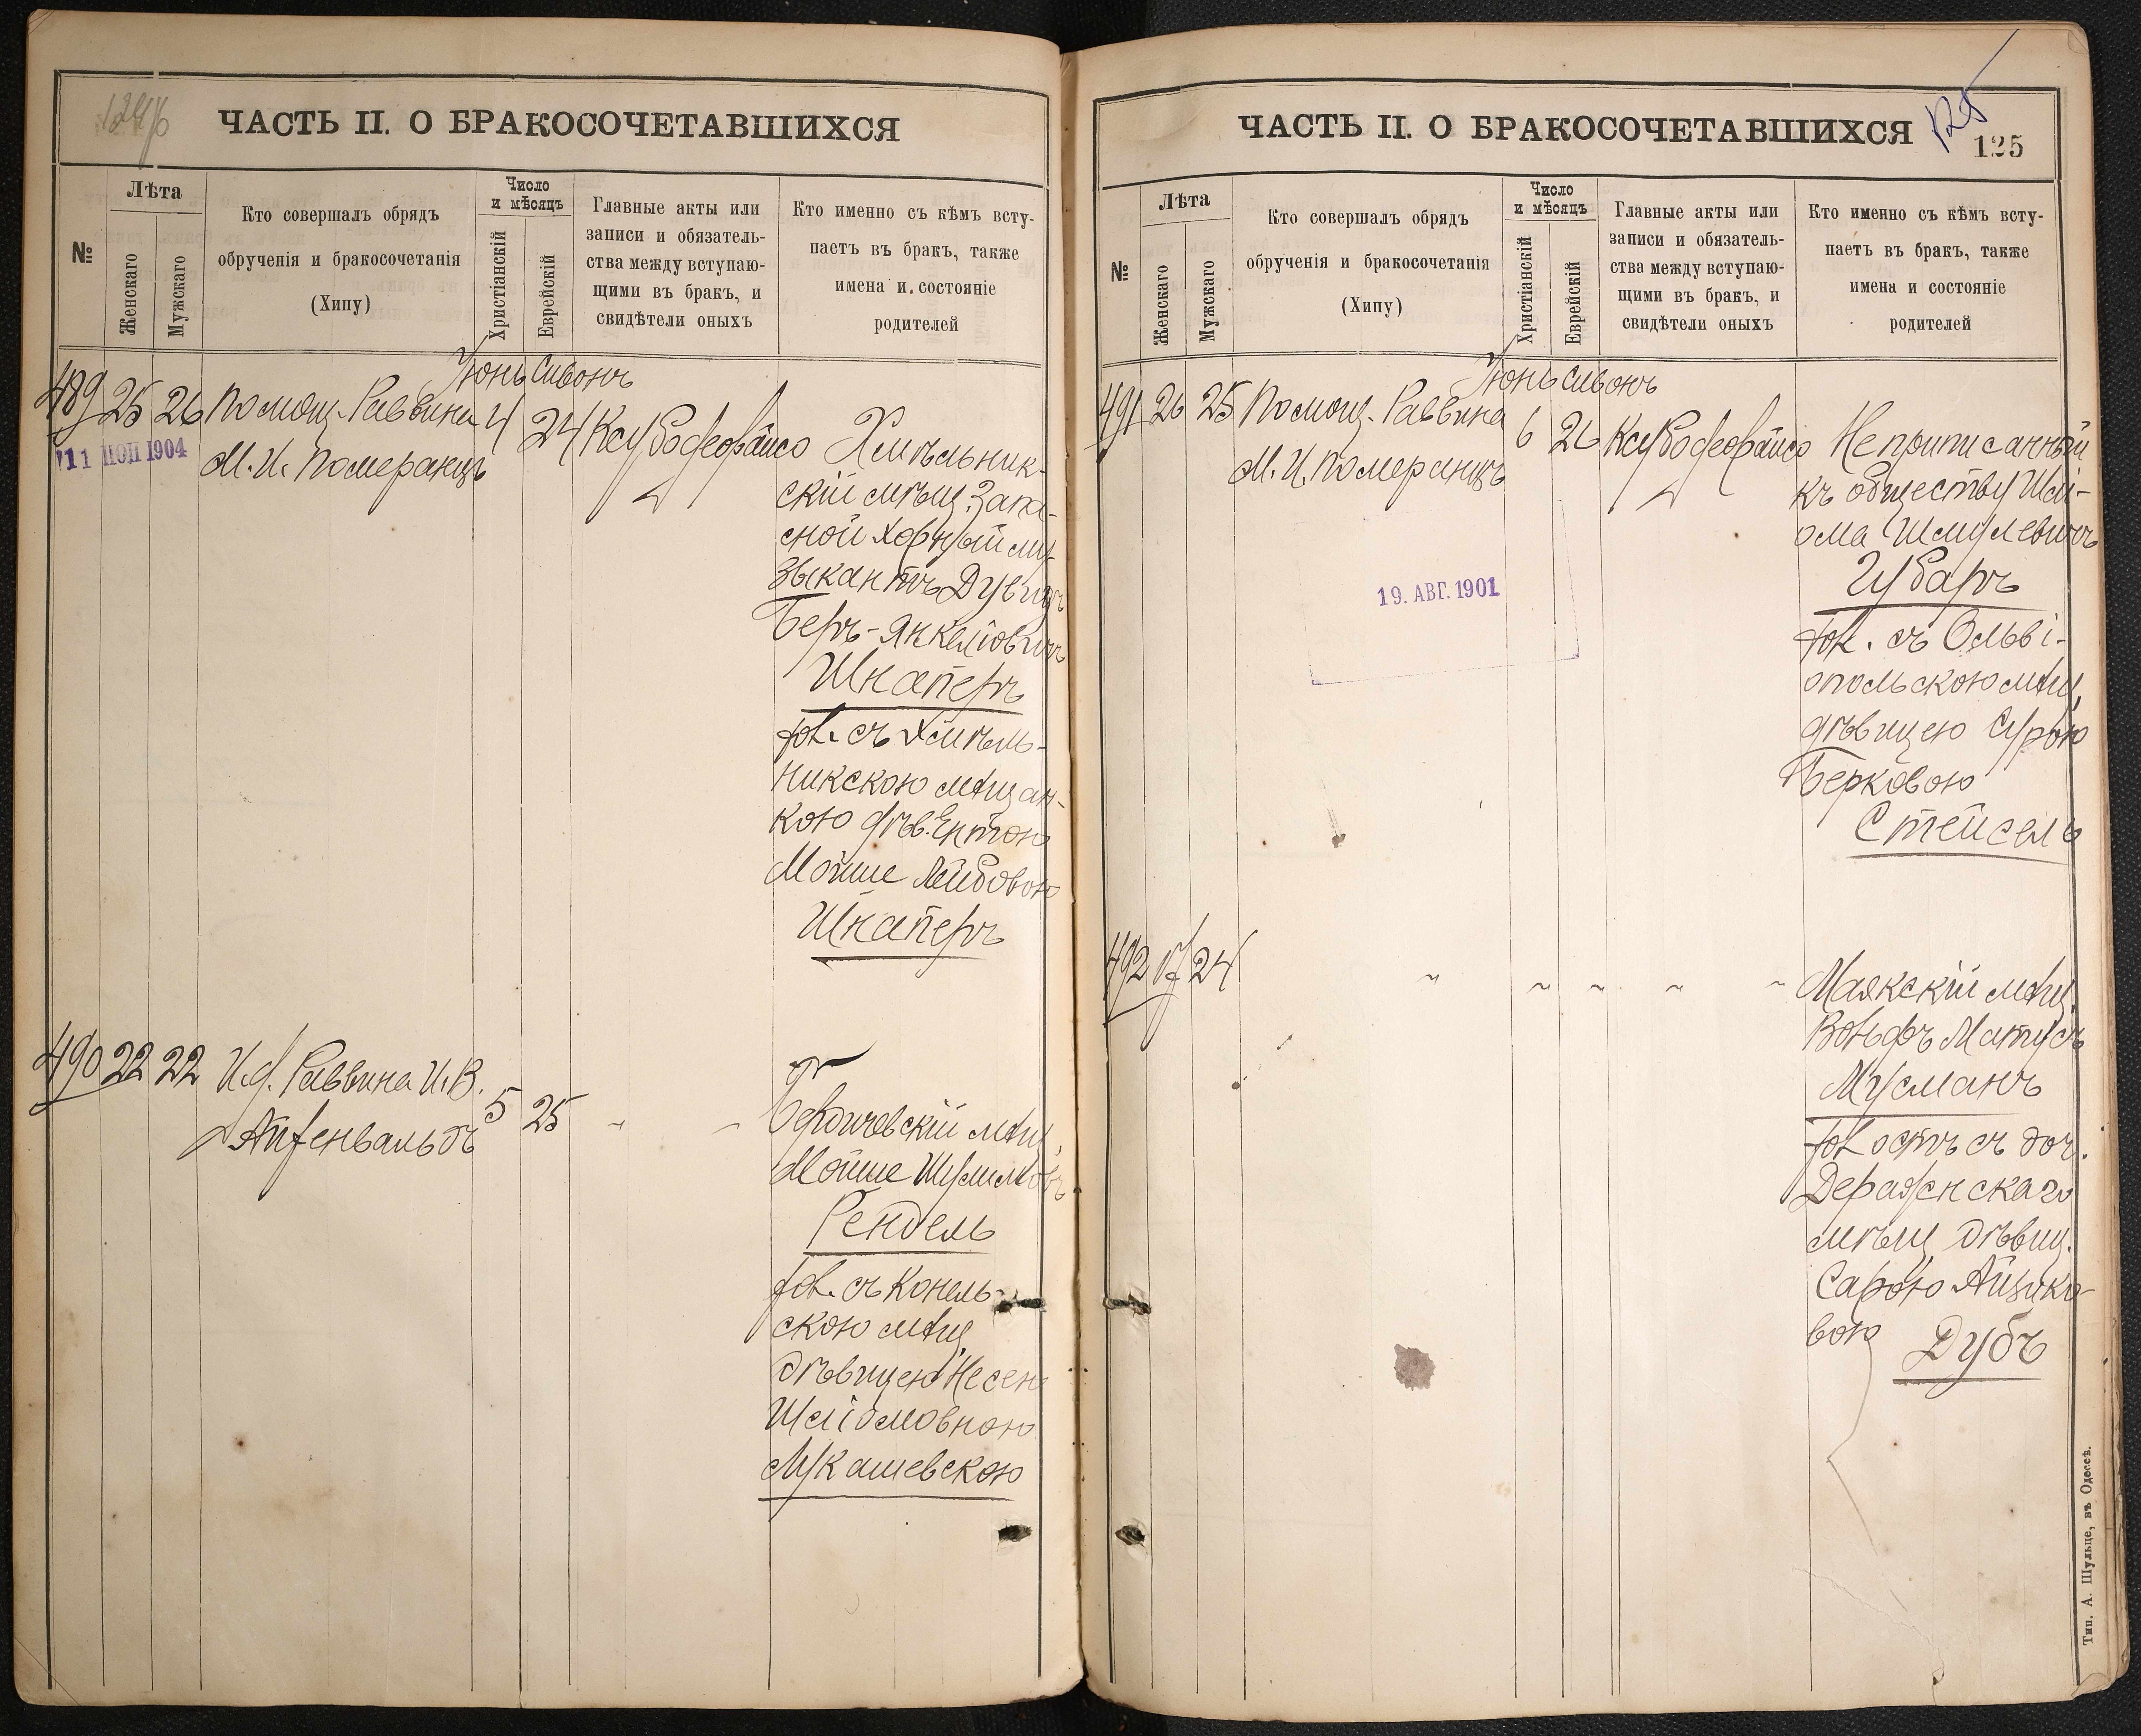 ЧАСТЬ II. О БРАКОСОЧЕТАВШИХСЯ
№
Лѣта
Женскаго
Мужскаго
Кто совершалъ обрядъ
обрученія и бракосочетанія
(Хипу)
Число
и мѣсяцъ
Христіанскій
Еврейскій
Главные акты или
записи и обязатель-
ства между вступаю-
щими въ бракъ, и
свидѣтели оныхъ
Кто именно съ кѣмъ всту-
паетъ въ бракъ, также
имена и состояніе
родителей
Іюнь Сивонъ
489 25 26 Помощ. Раввина 4 24
М. И. Померанцъ
11 ІЮН 1904
Хмѣльник-
скій мѣщ. Запа-
сной хорный му-
зыкантъ Дувидъ
Беръ-Янкеліовичъ
Шнаперъ
съ Хмѣль-
никскою мѣщан-
кою дѣв. Ентою
Мойше Лейбовою
Шнаперъ
490 22 22 И.д. Раввина И.В. 5 25 " "
Айзенвальдъ
Бердичевскій мѣщ.
Мойше
Рендель
съ Конель-
скою мѣщ.
дѣвицею Несею
Шліомовною
Лукашевскою
ЧАСТЬ II. О БРАКОСОЧЕТАВШИХСЯ
125
125
№
Лѣта
Женскаго
Мужскаго
Кто совершалъ обрядъ
обрученія и бракосочетанія
(Хипу)
Число
и мѣсяцъ
Христіанскій
Еврейскій
Главные акты или
записи и обязатель-
ства между вступаю-
щими въ бракъ, и
свидѣтели оныхъ
Кто именно съ кѣмъ всту-
паетъ въ бракъ, также
имена и состояніе
родителей
Іюнь Сивонъ
491 26 25 Помощ. Раввина 6 26
М. И. Померанцъ
19. АВГ. 1901
Неприписанный
къ обществу Шлі-
ома Шмулевичъ
Губаръ
съ Ольві-
опольскою мѣщ.
дѣвицею Сурою
Берковою
Стейсель
492 17 24 " " " " "
Маякскій мѣщ.
Вольфъ Матусъ
Мусманъ
съ доч.
Деражнскаго
мѣщ. дѣвиц.
Сарою Айзико-
вою Дубъ
Тип. А. Шульце, въ Одессѣ.